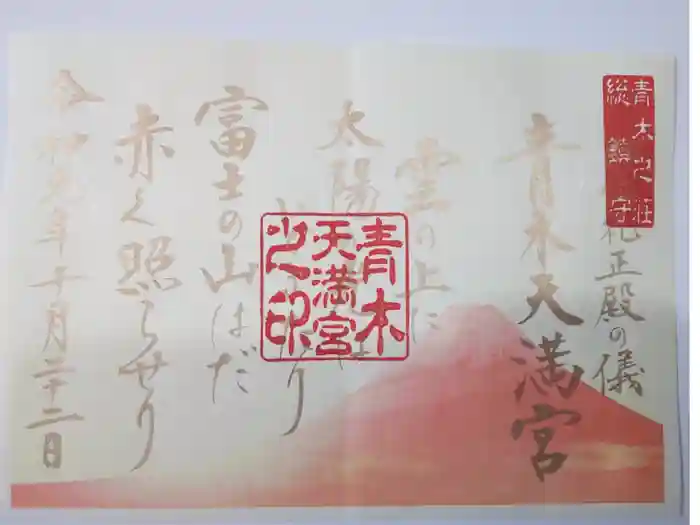 青木之荘
総鎮守
礼正殿の儀
青木天満宮
雲の上に
太陽
は
り
富士の山はだ
赤く照らせり
令和元年十月二十二日
青木
天満宮
之印